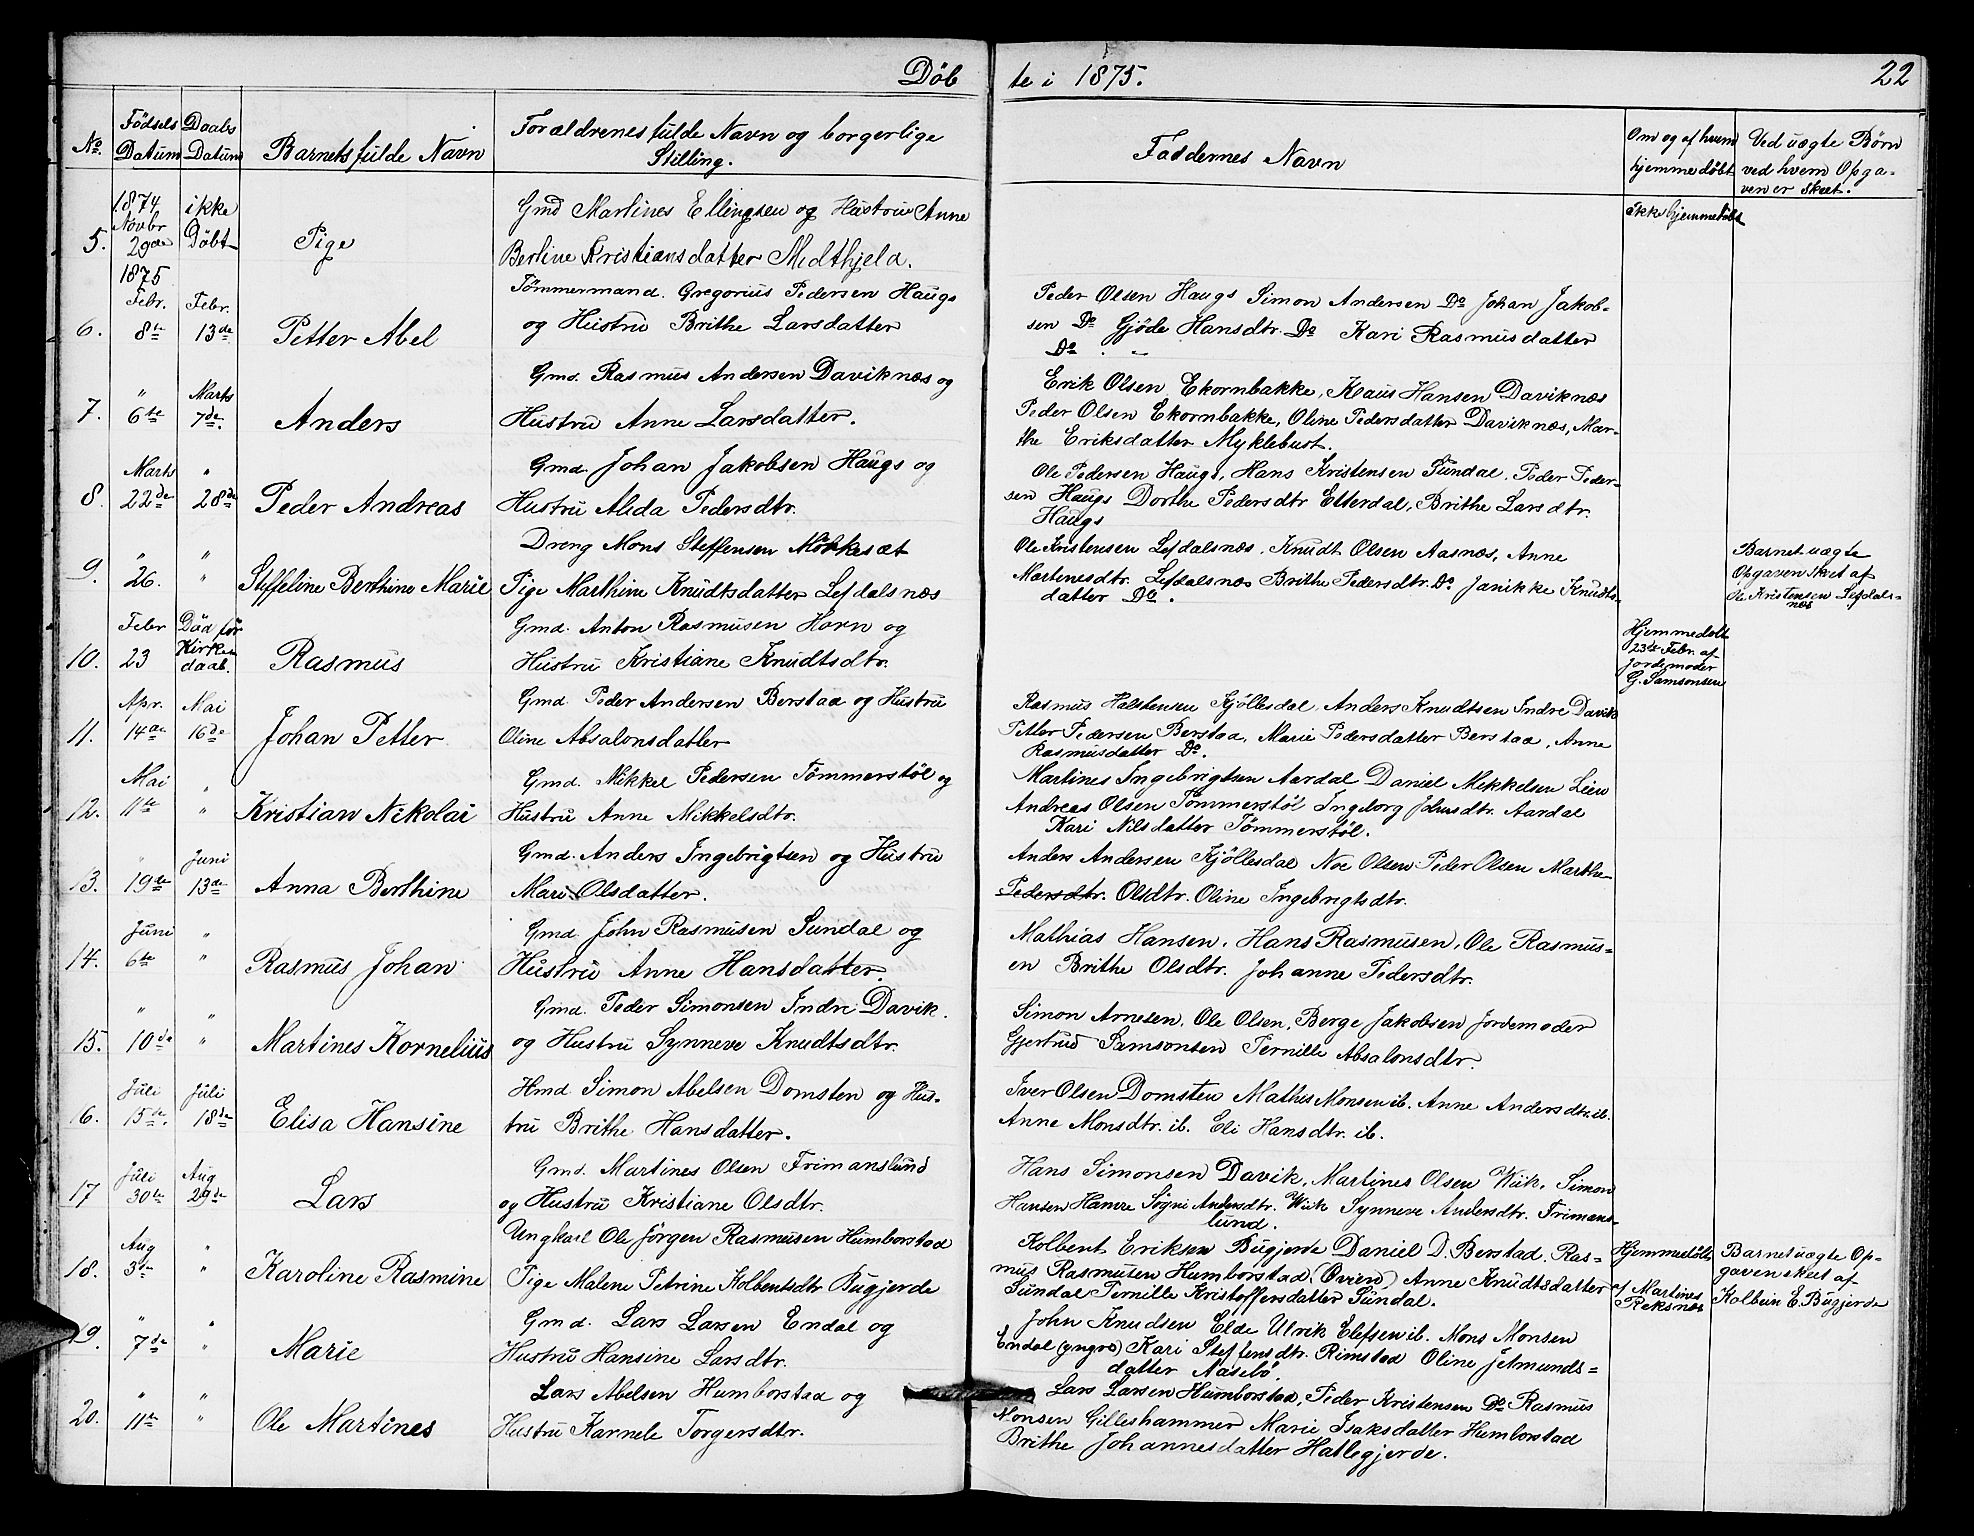 Döb
te i 1875.
22
No.
Fødsels Datum
Daabs Datum
Barnets fulde Navn
Forældrenes fulde Navn og borgerlige
Stilling.
Faddernes Navn
Om og af hvem
hjemmedöbt
Ved uægte Börn
ved hvem Opga-
ven er skeet.
5.
1874
Novbr
29de
ikke
Döbt
Pige
Gmd Martines Ellingsen og Hustru Anne
Berline Kristiansdatter Midthjeld.
ikke hjemmedöbt
6.
1875
Febr.
8de
Febr.
13de
Petter Abel
Tömmermand. Gregorius Pedersen Haugs
og Hustru Brithe Larsdatter
Peder Olsen Haugs Simon Andersen Do Johan Jakob-
sen Do Gjöde Hansdtr. Do Kari Rasmusdatter
Do
7.
"
6te
Marts
7de.
Anders
Gmd. Rasmus Andersen Daviknæs og
Hustru Anne Larsdatter.
Erik Olsen Ekornbakke, Klaus Hansen Daviknæs
Peder Olsen Ekornbakke, Oline Pedersdatter Daviknæs, Mar-
the Eriksdatter Myklebust.
8.
Marts
22de
"
28de
Peder Andreas
Gmd. Johan Jakobsen Haugs og
Hustru Alida Pedersdtr.
Ole Pedersen Haugs, Hans Kristensen Sundal, Peder Peder-
sen Haugs Dorthe Pedersdtr Etterdal, Brithe Larsdtr.
Haugs
9.
"
26.
"
"
Steffeline Berthine Marie
Dreng Mons Steffensen Mökkesæt
Pige Marthine Knudtsdatter Lefdalsnæs
Ole Kristensen Lefdalsnæs, Knudt Olsen Aasnæs, Anne
Martenesdtr. Lefdalsnæs Brithe Pedersdtr. Do Janikke Knudts-
datter Do.
Barnet uægte
Opgaven skeet af
Ole Kristensen Lefdals-
næs
10.
Febr
23
Död för
Kirken
daab.
Rasmus
Gmd. Anton Rasmusen Horn og
Hustru Kristiane Knudtsdtr.
Hjemmedöbt
23de Febr. af
Jordemoder
G. Samsonsen
11.
Apr.
14de
Mai
16de
Johan Petter
Gmd. Peder Andersen Berstad og Hustru
Oline Absalonsdatter
Rasmus Halstensen Kjöllesdal, Anders Knudtsen Indre Davik
Petter Pedersen Berstad, Marie Pedersdatter Berstad, Anne
Rasmusdatter Do.
12.
Mai
11te
"
"
Kristian Nikolai
Gmd. Mikkel Pedersen Tömmerstöl og
Hustru Anne Mikkelsdtr.
Martines Ingebrigtsen Aardal Daniel Mikkelsen Lien
Andreas Olsen Tömmerstöl Ingeborg Johnsdtr. Aardal
Kari Nilsdatter Tömmerstöl.
13.
"
19de
Juni
13de
Anna Berthine
Gmd. Anders Ingebrigtsen og Hustru
Mari Olsdatter.
Anders Andersen Kjöllesdal Noe Olsen Peder Olsen Marthe
Pedersdtr. Olsdtr. Oline Ingebrigtsdtr.
14.
Juni
6te
"
"
Rasmus Johan
Gmd. John Rasmusen Sundal og
Hustru Anne Hansdatter.
Mathias Hansen, Hans Rasmusen, Ole Rasmus-
en Brithe Olsdtr. Johanne Pedersdtr.
15.
"
10de
"
"
Martines Kornelius
Gmd. Peder Simonsen Indre Davik.
og Hustru Synneve Knudtsdtr.
Simon Arnesen, Ole Olsen, Berge Jakobsen Jordemoder
Gjertrud Samsonsen Pernille Absalonsdtr.
16.
Juli
15de.
Juli
18de
Elisa Hansine
Hmd Simon Abelsen Domsten og Hus-
tru Brithe Hansdatter.
Iver Olsen Domsten Mathis Monsen ib. Anne Andersdtr. ib.
Anne Monsdtr. ib. Eli Hansdtr. ib.
17
Juli
30te
Aug
29de
Lars
Gmd. Martines Olsen Frimanslund
og Hustru Kristiane Olsdtr.
Hans Simonsen Davik, Martines Olsen Wiik, Simon
Hansen Hamre Sögni Andersdtr. Wiik Synneve Andersdtr. Frimans-
lund.
18.
Aug
3de
"
"
Karoline Rasmine
Ungkarl Ole Jörgen Rasmusen Humborstad
Pige Malene Petrine Kolbentsdtr Bugjerde
Kolbent Eriksen Bugjerde Daniel D. Berstad, Ras-
mus Rasmusen Humborstad (Övien) Anne Knudtsdatter
Sundal Pernille Kristoffersdatter Sundal.
Hjemmedöbt
af Martines
Reksnæs
Barnet uægte Op-
gaven skeet af
Kolbein E. Bugjerde
19.
"
7de
"
"
Marie
Gmd. Lars Larsen Endal og
Hustru Hansine Larsdtr.
John Knudsen Elde Ulrik Elefsen ib. Mons Monsen
Endal (yngre) Kari Steffensdtr. Rimstad Oline Jetmunds-
datter Nasebö.
20.
"
11te
"
"
Ole Martines
Lars Abelsen Humborstad og
Hustru Karnele Torgersdtr.
Lars Larsen Humborstad, Peder Kristensen Do Rasmus
Monsen Gilleshammer Marie Isaksdatter Humborstad
Brithe Johannesdatter Hatlegjerde.